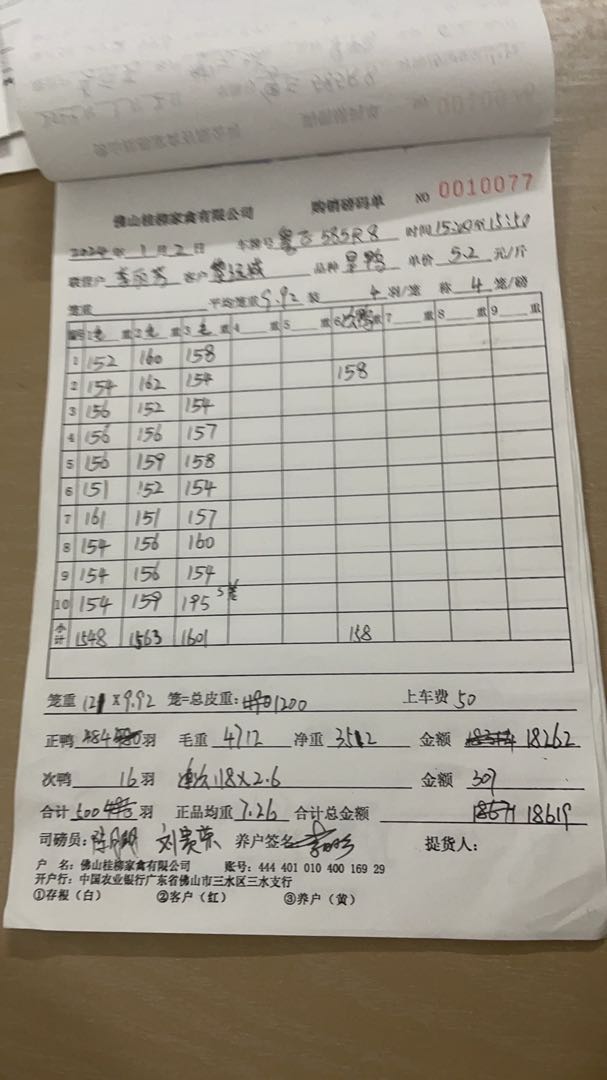 佛山桂柳家禽有限公司 购销磅码单 NO 0010077
2024年 1月 2日 车牌号 585R8 时间 15:20至15:50
联营户 客户 品种 鸭 单价 5.2 元/斤
笼重 平均笼重 9.92 装 4 羽/笼 称 4 笼/磅
编号 1 重 2 重 3 重 4 重 5 重 6 次鸭 重 7 重 8 重 9 重
1 152 160 158
2 154 162 154 158
3 156 152 154
4 156 156 157
5 150 159 158
6 151 152 154
7 161 151 157
8 154 156 160
9 154 156 154
10 154 159 195 5笼
小计 1548 1563 1601 158
笼重 121 X 9.92 笼=总皮重: 1200 上车费 50
正鸭 484 羽 毛重 4712 净重 3512 金额 18262
次鸭 16 羽 118 X 2.6 金额 307
合计 500 羽 正品均重 7.26 合计总金额 18671 18619
司磅员: 刘贵荣 养户签名 提货人:
户 名: 佛山桂柳家禽有限公司 账号: 444 401 010 400 169 29
开户行: 中国农业银行广东省佛山市三水区三水支行
①存根（白） ②客户（红） ③养户（黄）